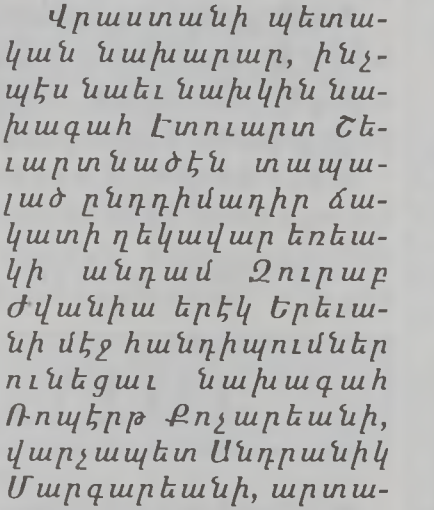 Վրաստանի պետա-
կան նախարար, ինչ-
պէս նաեւ նախկին նա-
խագահ Էտուարտ Շե-
ւարտնածէն տապա-
լած ընդդիմադիր ճա-
կատի ղեկավար եռեա-
կի անդամ Զուրաբ
Ժվանիա երէկ Երեւա-
նի մէջ հանդիպումներ
ունեցաւ նախագահ
Ռոպէրթ Քոչարեանի,
վարչապետ Անդրանիկ
Մարգարեանի, արտա-